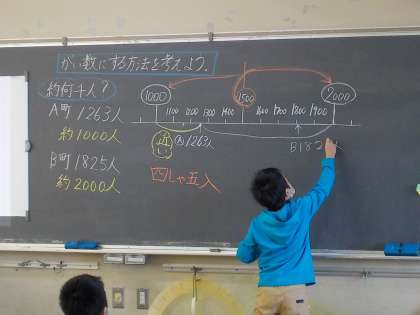 がい数にする方法を考えよう。
約何千人?
A町 1263人
約1000人
B町 1825人
約2000人
1000 1100 1200 1300 1400 1500 1600 1700 1800 1900 2000
近い
Ⓐ1263人
四しゃ五入